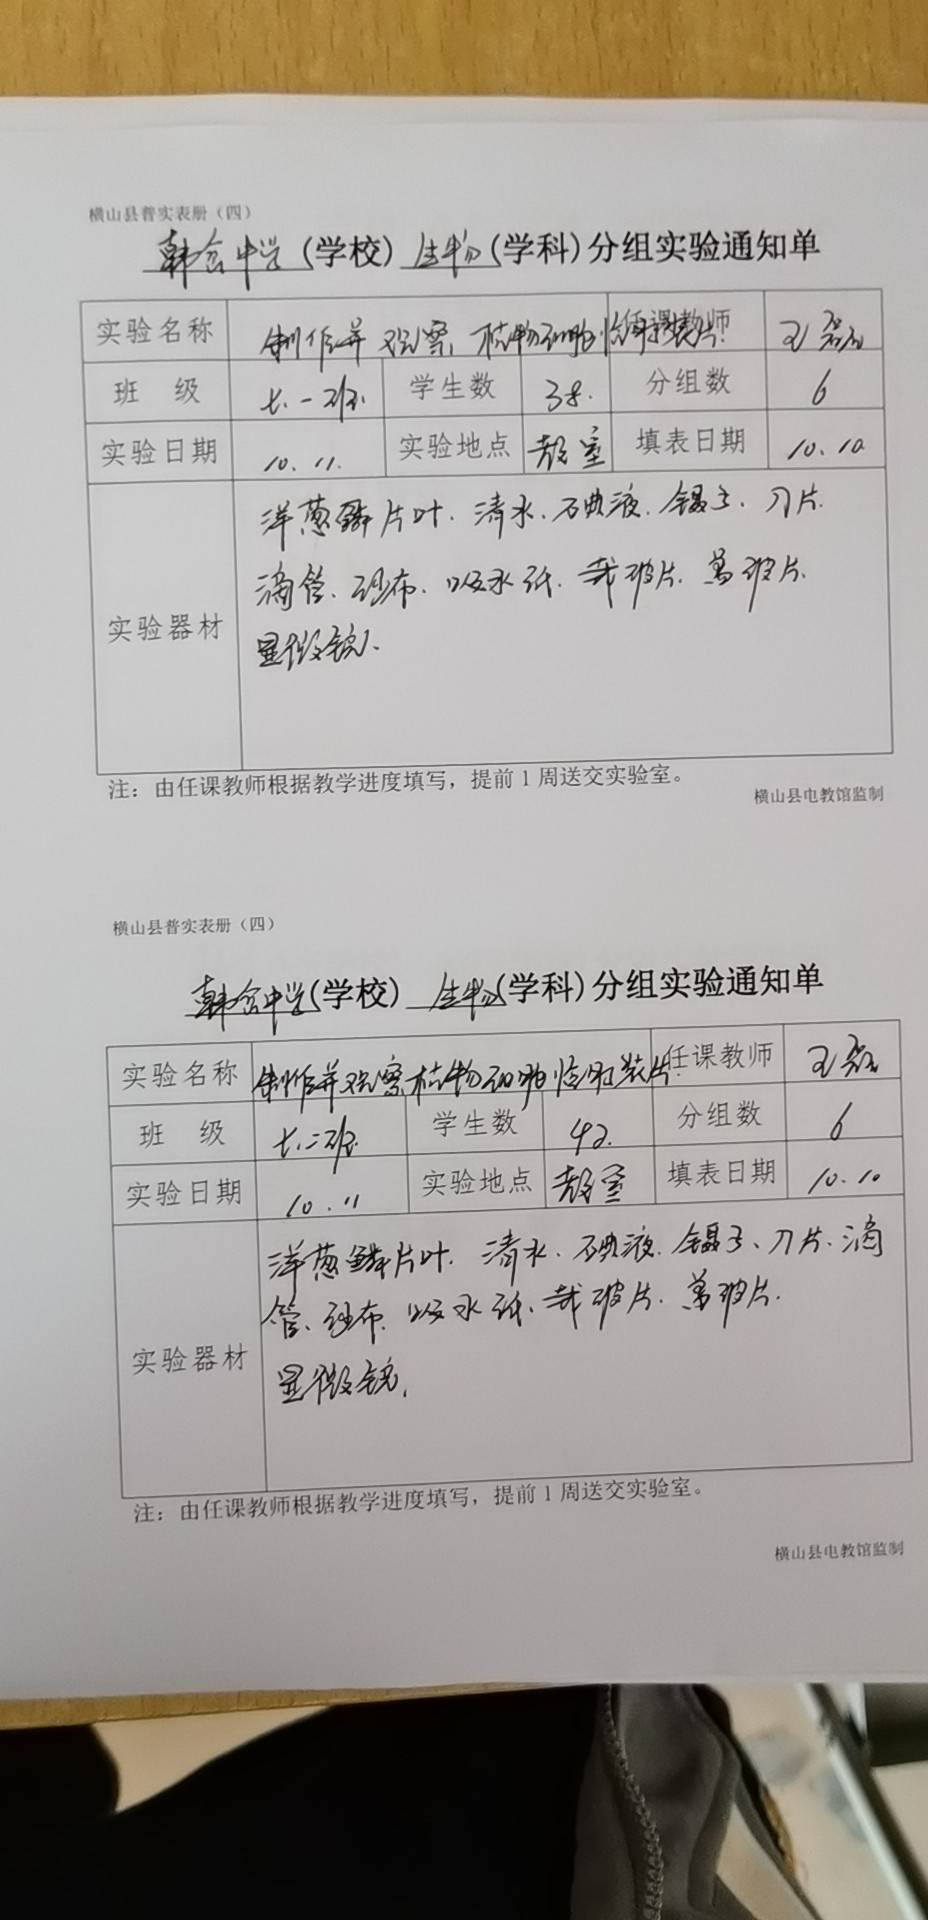 横山县普实表册（四）
韩岔中学(学校) 生物(学科)分组实验通知单
实验名称 制作并观察植物细胞临时装片. 任课教师 王
班 级 七.一班. 学生数 38. 分组数 6
实验日期 10.11. 实验地点 教室 填表日期 10.10
洋葱鳞片叶. 清水. 碘液. 镊子. 刀片.
滴管. 纱布. 吸水纸. 载玻片. 盖玻片.
实验器材
显微镜.
注：由任课教师根据教学进度填写，提前1周送交实验室。
横山县电教馆监制
横山县普实表册（四）
韩岔中学(学校) 生物(学科)分组实验通知单
实验名称 制作并观察植物细胞临时装片. 任课教师 王
班 级 七.二班. 学生数 42. 分组数 6
实验日期 10.11 实验地点 教室 填表日期 10.10
洋葱鳞片叶. 清水. 碘液. 镊子、刀片. 滴
管. 纱布. 吸水纸. 载玻片. 盖玻片.
实验器材
显微镜.
注：由任课教师根据教学进度填写，提前1周送交实验室。
横山县电教馆监制